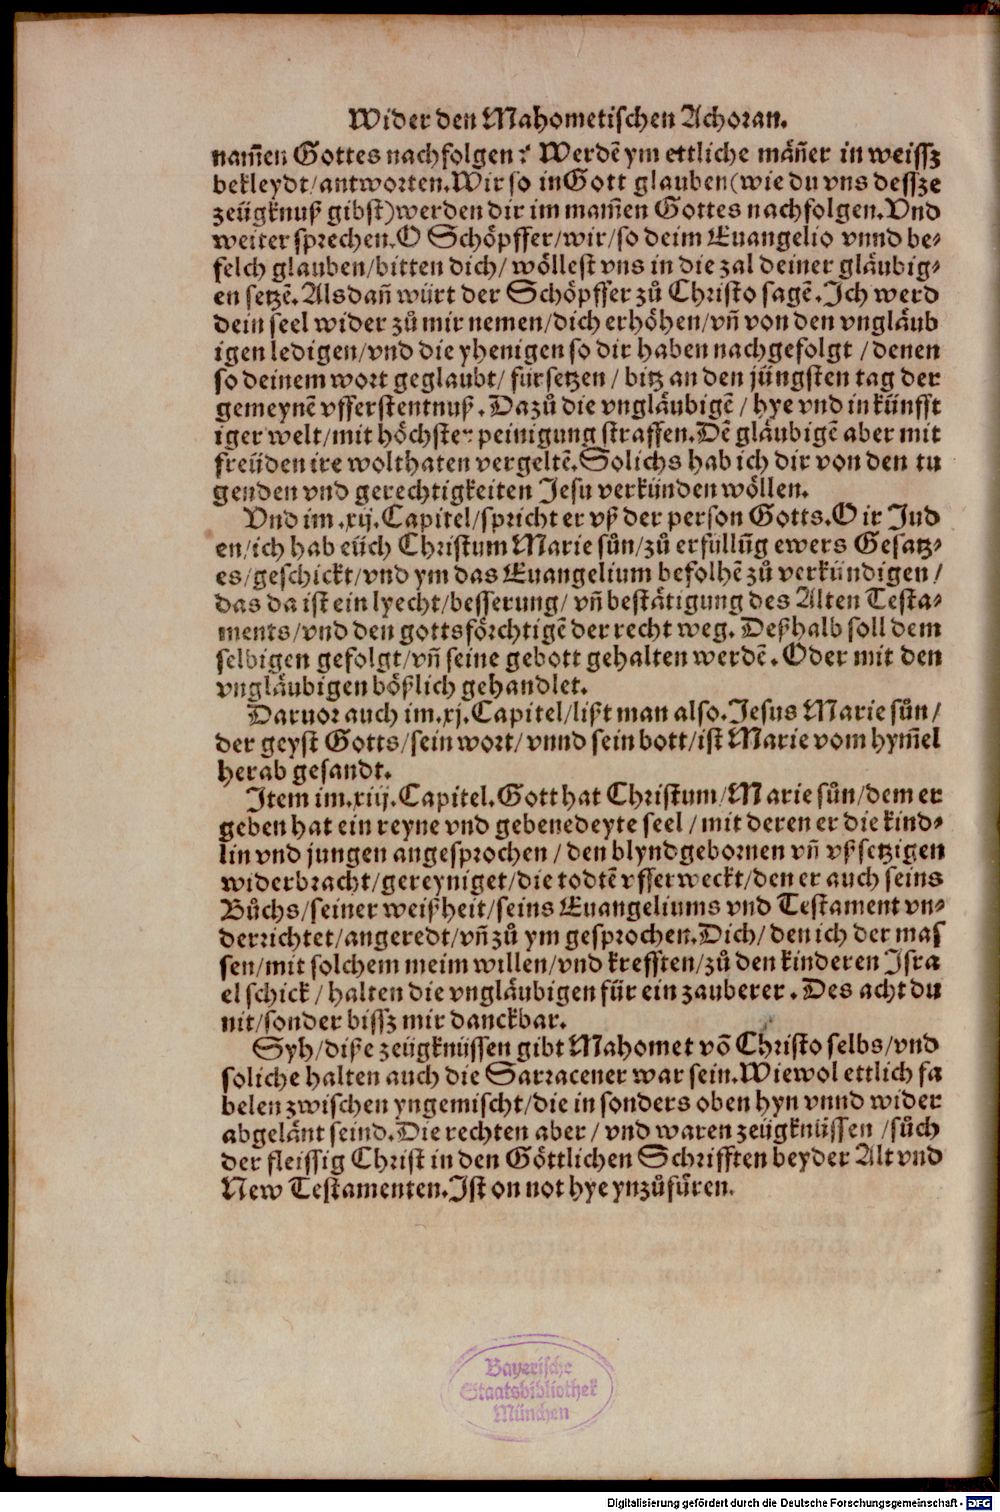 Wider den Mahometischen Achoran.
nam̃en Gottes nachfolgen? Werdē ym ettliche mäñer in weissz
bekleydt/antworten. Wir so in Gott glauben (wie du vns dessze
zeügknuß gibst) werden dir im mam̃en Gottes nachfolgen. Vnd
weiter sprechen. O Schöpffer/wir/so deim Euangelio vnnd be-
felch glauben/bitten dich/ wöllest vns in die zal deiner gläubig-
en setzē. Alsdañ würt der Schöpffer zů Christo sagē. Ich werd
dein seel wider zů mir nemen/dich erhöhen/vñ von den vngläub
igen ledigen/vnd die yhenigen so dir haben nachgefolgt /denen
so deinem wort geglaubt/ fürsetzen / bitz an den jüngsten tag der
gemeynē vfferstentnuß. Dazů die vngläubigē / hye vnd in künfft
iger welt/mit höchster peinigung straffen. Dē gläubigē aber mit
freüden ire wolthaten vergeltē. Solichs hab ich dir von den tu
genden vnd gerechtigkeiten Jesu verkünden wöllen.
Vnd im .xij. Capitel/spricht er vß der person Gotts. O ir Jud
en/ich hab eüch Christum Marie sůn/zů erfüllũg ewers Gesatz-
es/geschickt/vnd ym das Euangelium befolhē zů verkündigen/
das da ist ein lyecht/besserung/ vñ bestätigung des Alten Testa-
ments/vnd den gottsförchtigē der recht weg. Deßhalb soll dem
selbigen gefolgt/vñ seine gebott gehalten werdē. Oder mit den
vngläubigen bößlich gehandlet.
Daruor auch im .xj. Capitel/lißt man also. Jesus Marie sůn/
der geyst Gotts/sein wort/ vnnd sein bott/ist Marie vom hym̃el
herab gesandt.
Item im .xiij. Capitel. Gott hat Christum/Marie sůn/dem er
geben hat ein reyne vnd gebenedeyte seel / mit deren er die kind-
lin vnd jungen angesprochen / den blyndgebornen vñ vßsetzigen
widerbracht/gereyniget/die todtē vfferweckt/den er auch seins
Bůchs/seiner weißheit/seins Euangeliums vnd Testament vn-
derrichtet/angeredt/vñ zů ym gesprochen. Dich/ den ich der mas
sen/mit solchem meim willen/vnd krefften/zů den kinderen Isra
el schick / halten die vngläubigen für ein zauberer. Des acht du
nit/sonder bissz mir danckbar.
Syh/diße zeügknüssen gibt Mahomet vō Christo selbs/vnd
soliche halten auch die Sarracener war sein. Wiewol ettlich fa
belen zwischen yngemischt/die in sonders oben hyn vnnd wider
abgelänt seind. Die rechten aber / vnd waren zeügknüssen /sůch
der fleissig Christ in den Göttlichen Schrifften beyder Alt vnd
New Testamenten. Ist on not hye ynzůfüren.
Bayerische
Staatsbibliothek
München
Digitalisierung gefördert durch die Deutsche Forschungsgemeinschaft - DFG